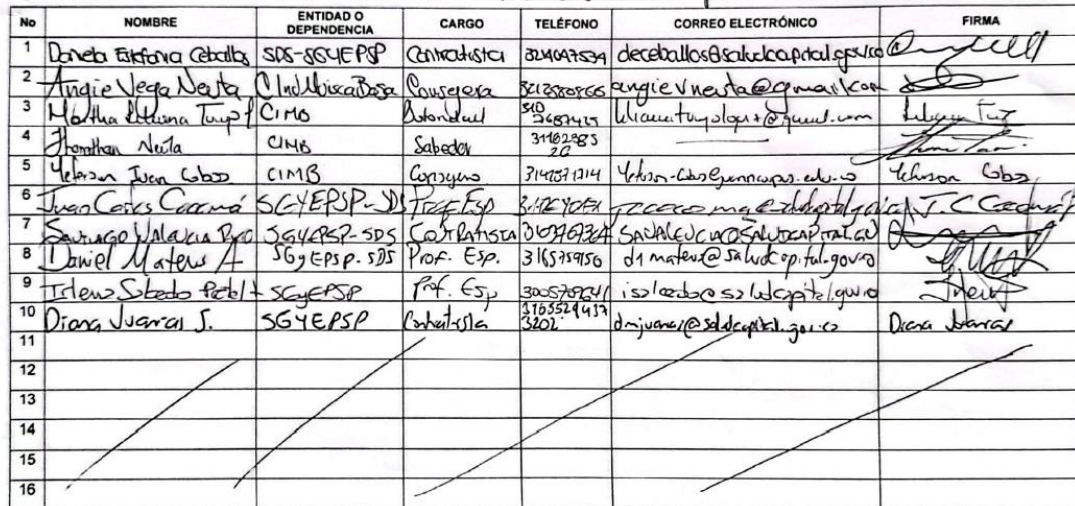 No NOMBRE ENTIDAD O DEPENDENCIA CARGO TELÉFONO CORREO ELECTRÓNICO FIRMA
1 Daniela Estefania Ceballos SDS-SGYEPSP Contratista 3214047534 deceballos@saludcapital.gov.co
2 Angie Vega Neuta C Ind Muisca Bosa Consejera 3212580866 angievneuta@gmail.com
3 Martha Liliana Tunjo CIMB Autoridad 310
4 Jhonathan Neuta CIMB Sabedor 31162985 20
5 Yeferson Ivan Cobos CIMB Consejero Yeferson Cobos
6 Juan Carlos Cacamá SGYEPSP-SDS Prof Esp J.C Cacamá
7 Santiago Valencia SGYEPSP-SDS Contratista 3163767364 SAVALENCIA@SALUDCAPITAL.GOV
8 Daniel Mateus A SGYEPSP-SDS Prof. Esp. 3165759150 d1mateus@saludcapital.gov.co
9 Salcedo SGYEPSP Prof. Esp 3005709641 isalcedo@saludcapital.gov.co
10 Diana Juanias S. SGYEPSP Contratista 3165529437 3202 dmjuanias@saludcapital.gov.co Diana Juanias
11
12
13
14
15
16